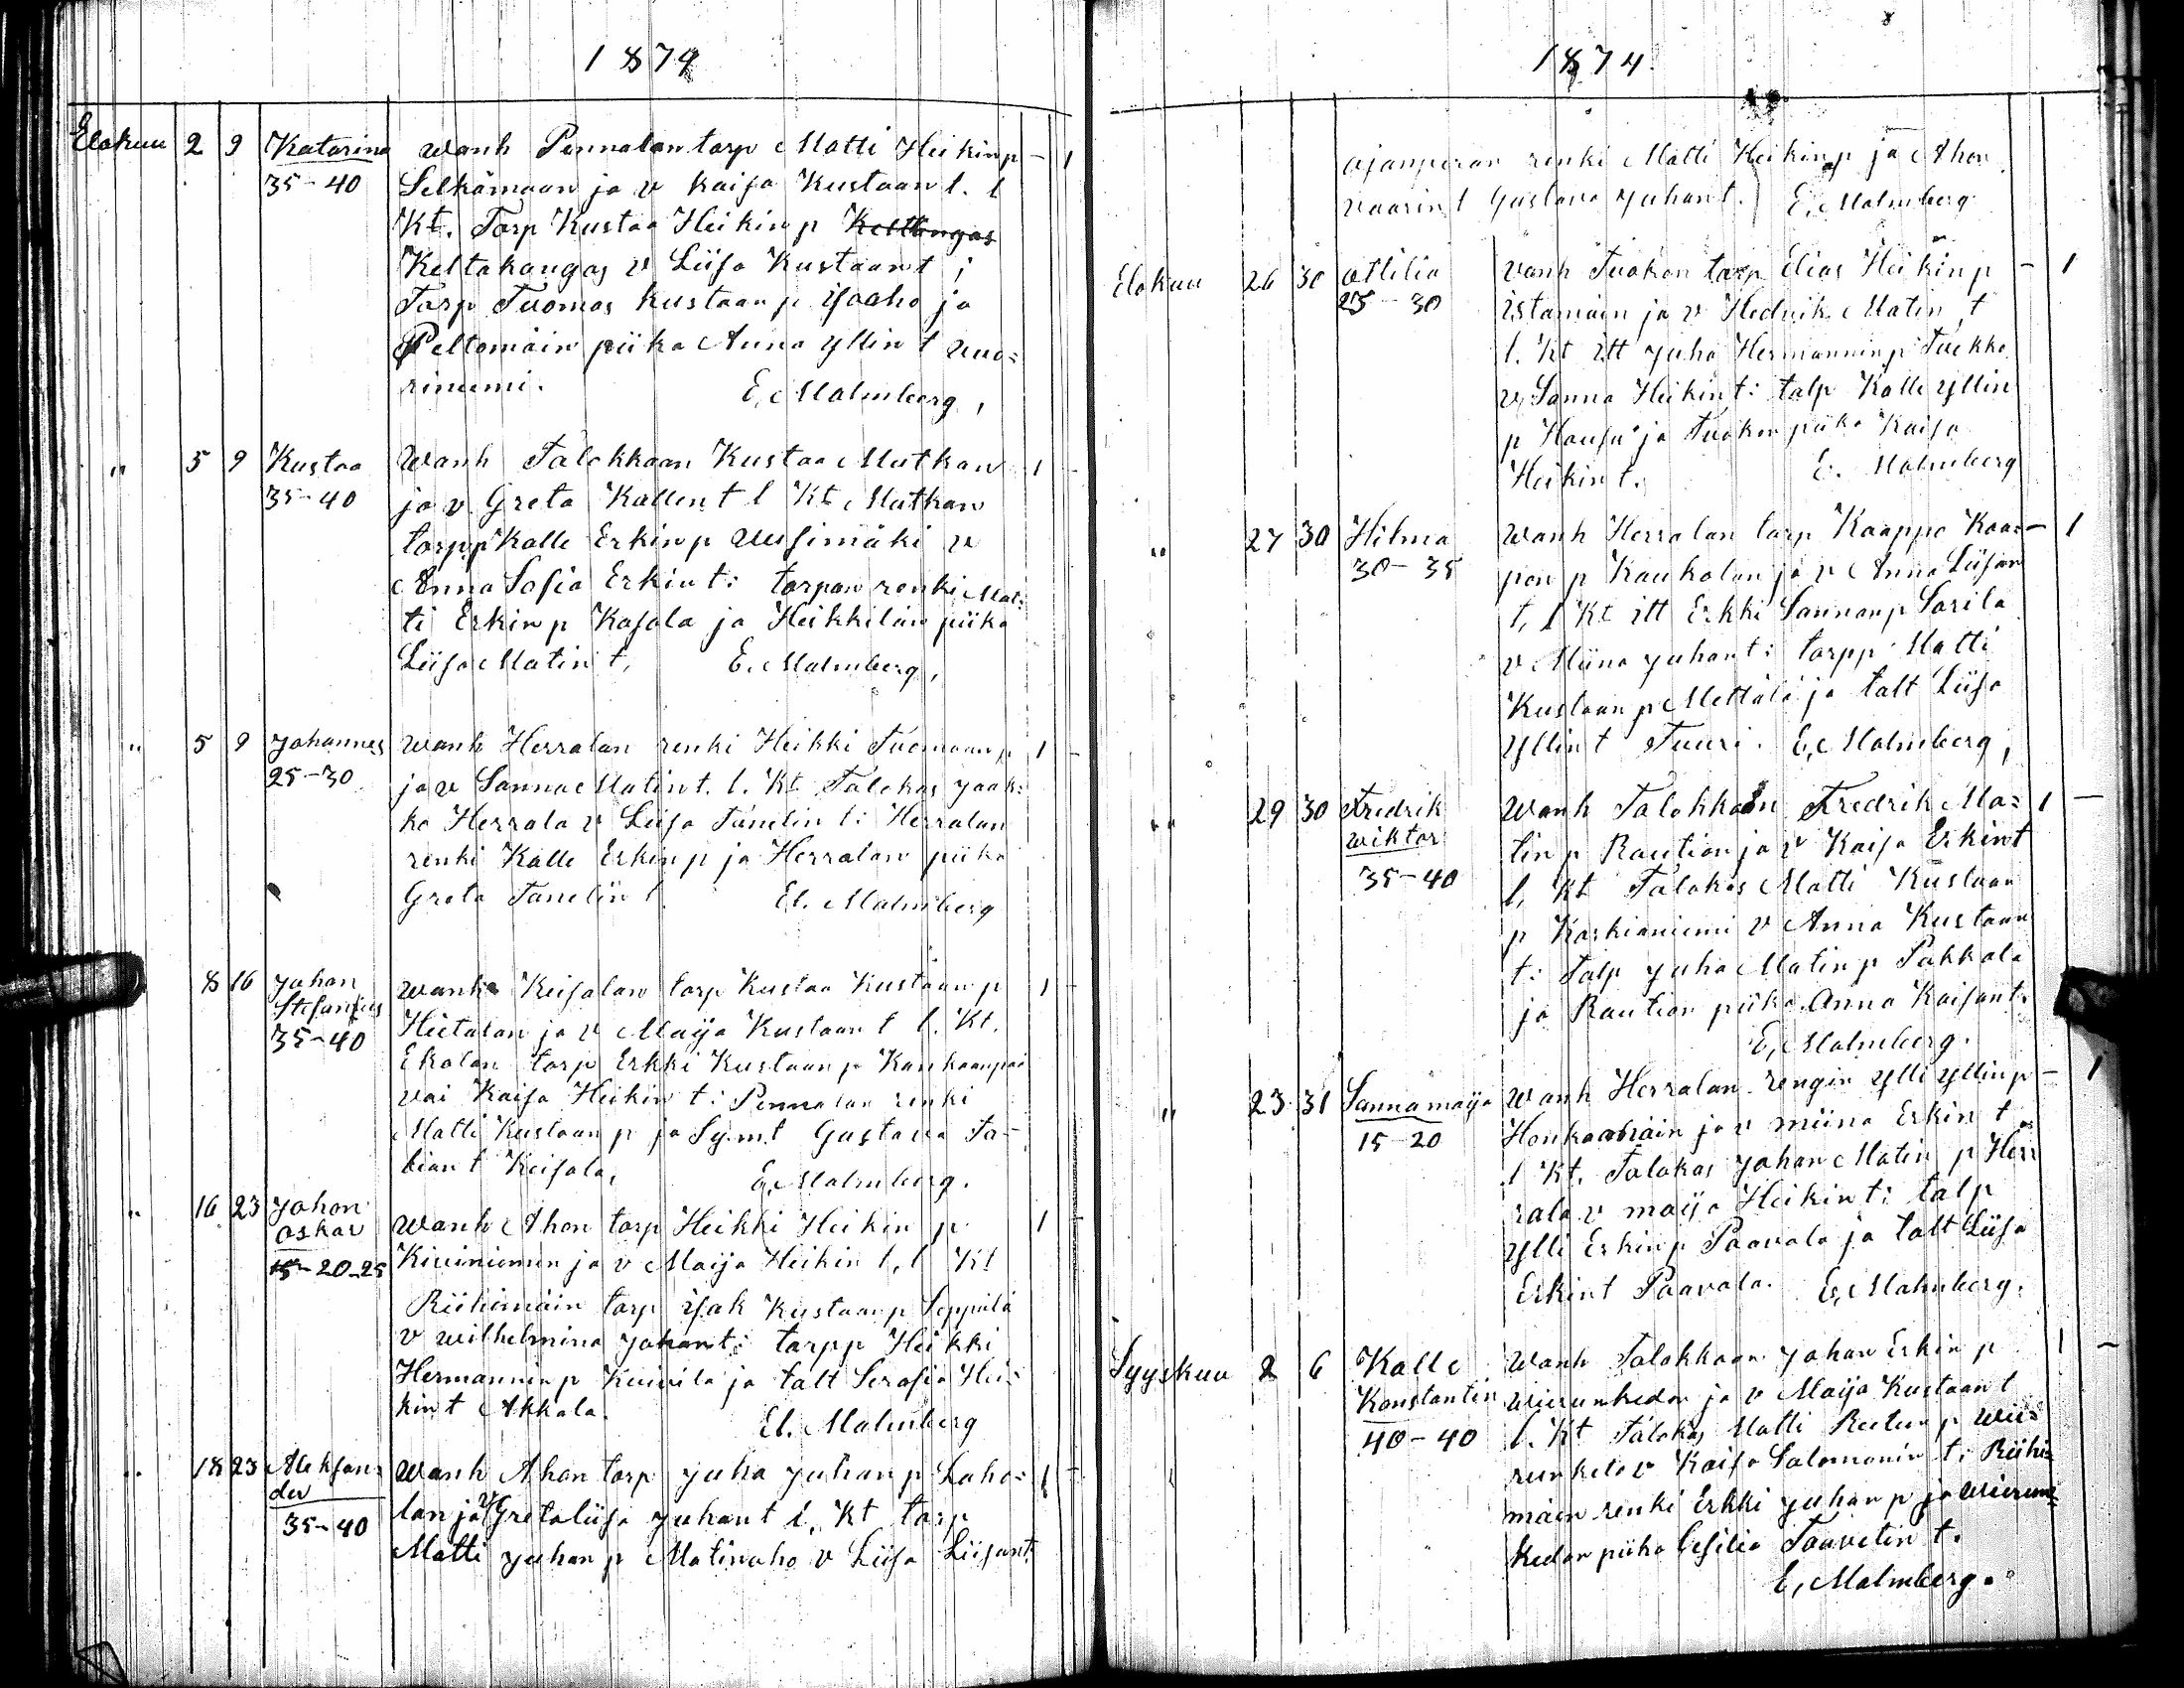 1874
Elokuu 2 9 Katarina wanh Pennalan torp Matti Heikinp - 1
35-40 Selkämaan ja v Kaisa Kustaan t. l
Kt. Torp Kustaa Heikin p Keltkangas
Keltakangas v Liisa Kustaan t ;
Torp Tuomas Kustaan p Ysaho ja
Peltomäin piika Anna Yllin t Uuo=
riniemi. E. Malmberg,
" 5 9 Kustaa Wanh Talokkaan Kustaa Matkan 1 -
35-40 ja v Greta Kallen t l Kt Matkan
torpp Kalle Erkin p Uusimäki v
Anna Sofia Erkin t: torpan renki Mat:
ti Erkin p Kasala ja Heikkilän piika
Liisa Matin t, E. Malmberg,
" 5 9 Johannes wanh Herralan renki Heikki Tuomaan p 1
25-30 ja v Sanna Matin t. l. Kt Talokas Jaak:
ko Herrala v Liisa Tanelin t: Herralan
renki Kalle Erkin p ja Herralan piika
Greta Tanelin t. E. Malmberg
8 16 Johan wanh Keisalan torp Kustaa Kustaan p 1 -
Stefanus Hietalan ja v Maija Kustaan t l. Kt.
35-40 Ekolan torp Erkki Kustaan p Kankaanpää
vai Kaisa Heikin t: Pennalan renki
Matti Kustaan p ja Sy.m.t Gustava Fa-
bian t Keisala, E. Malmberg.
" 16 23 Johan
Oskar wanh Ahon torp Heikki Heikin p 1 -
15-20-25 Kiviniemen ja v Maija Heikin t, l Kt
Riihimäin torp Isak Kustaan p Seppälä
v Wilhelmina Johan t: torpp Heikki
Hermannin p Kuivila ja talt Serafia Hei:
kin t Akkala. E. Malmberg
" 18 23 Aleksan= wanh Ahon torp Juha Juhan p Laho= 1 -
der lan ja v Gretaliisa Juhan t l. Kt torp
35-40
Matti Juhan p Matinaho v Liisa Liisan t.
1874.
ojanperän renki Matti Heikin p ja Ahon
vaarin t Gustava Juhan t. E. Malmberg
Elokuu 26 30 Otilia wanh Tuokon torp Elias Heikin p - 1
25-30 istamäin ja v Hedvik Matin t
l. Kt itt Juho Hermannin p Tuokko
v Sanna Heikin t: talp Kalle Yllin
p Hausu ja Tuokon piika Kaisa
Heikin t. E. Malmberg
" 27 30 Hilma Wanh Herralan torp Kaappo Kaa= - 1
30-35 pon p Kaukolan ja v Anna Liisan
t, l Kt itt Erkki Sannan p Sarila
v Miina Juhan t: torpp Matti
Kustaan p Mettälä ja talt Liisa
Yllin t Tuuri. E. Malmberg,
" 29 30 Fredrik Wanh Talokkaan Fredrik Ma= 1 -
Wiktor tin p Raution ja v Kaisa Erkin t
35-40 l. Kt Talokas Matti Kustaan
p Koskianiemi v Anna Kustaan
t: Talp Juha Matin p Pakkala
ja Raution piika Anna Kaisan t.
E. Malmberg.
" 23 31 Sannamaija Wanh Herralan rengin Ylli Yllin p - 1
15-20 Honkamäin ja v miina Erkin t
l Kt. Talokas Johan Matin p Her
rala v maija Heikin t: talp
Ylli Erkin p Paavola ja talt Liisa
Erkin t Paavola. E. Malmberg.
Syyskuu 2 6 Kalle Wanh Talokkaan Johan Erkin p 1 -
Konstantin Wiirunkedon ja v Maija Kustaan t
40-40 l. Kt Talokas Matti Reetun p Wii=
runketo v Kaisa Salomonin t: Riihi=
mäin renki Erkki Juhan p ja Wiirun=
kedon piika Cesilia Taavetin t.
E. Malmberg.